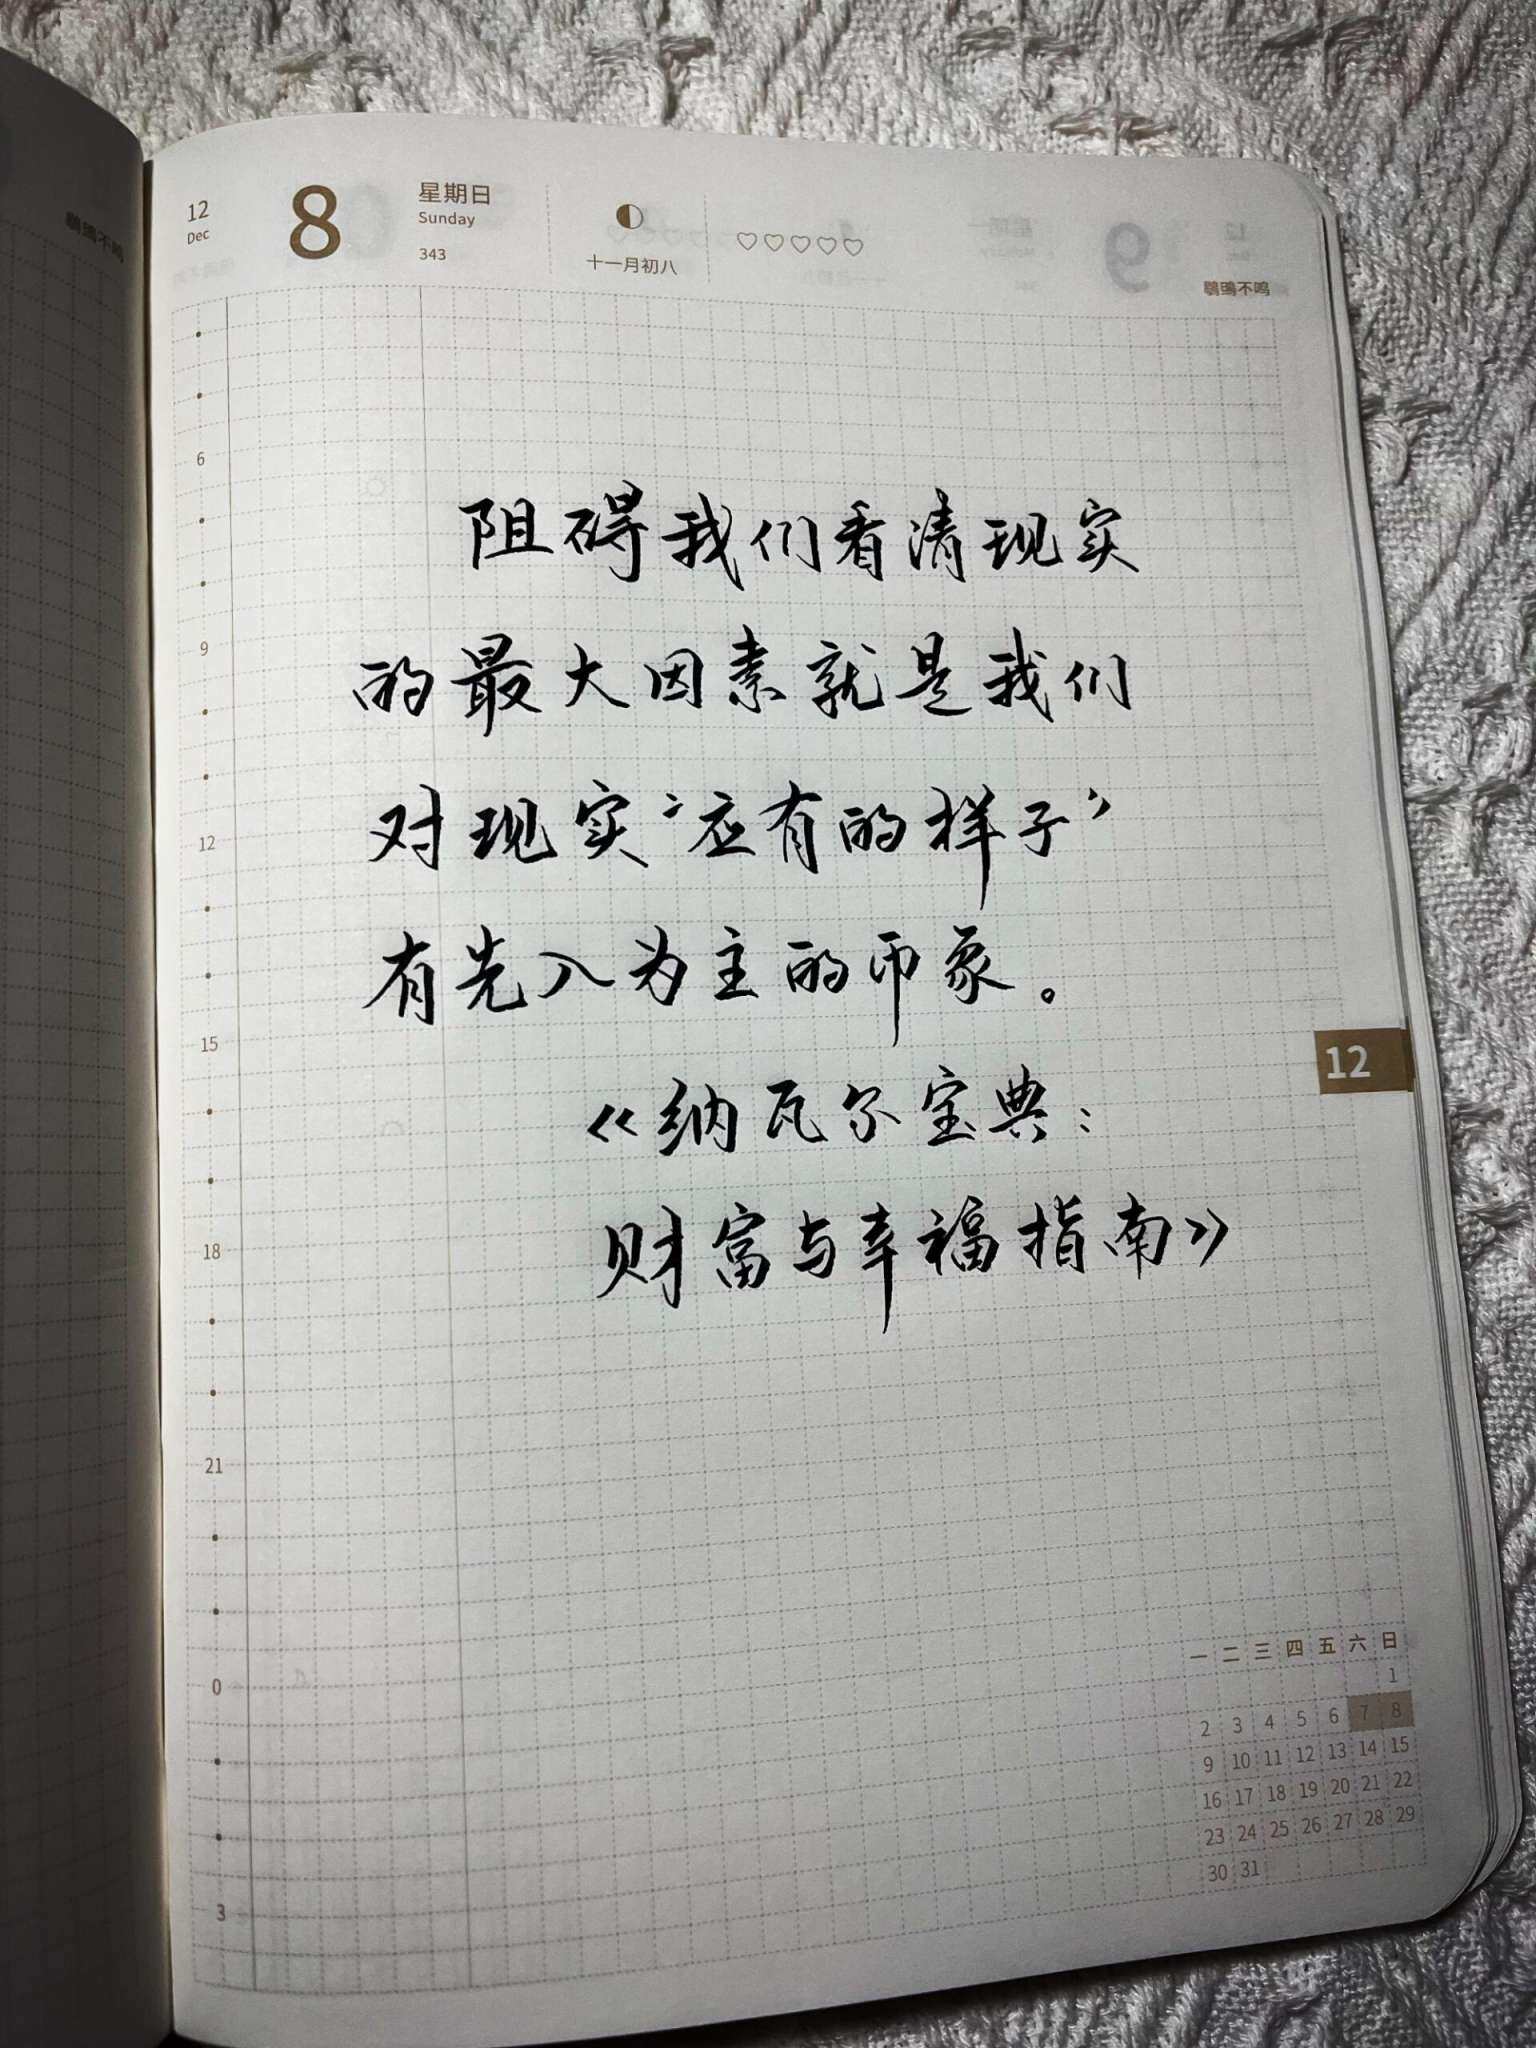 12
Dec
8
星期日
Sunday
343
十一月初八
鹖鴠不鸣
阻碍我们看清现实
的最大因素就是我们
对现实“应有的样子”
有先入为主的印象。
《纳瓦尔宝典：
财富与幸福指南》
6
9
12
15
18
21
0
3
12
一 二 三 四 五 六 日
1
2 3 4 5 6 7 8
9 10 11 12 13 14 15
16 17 18 19 20 21 22
23 24 25 26 27 28 29
30 31